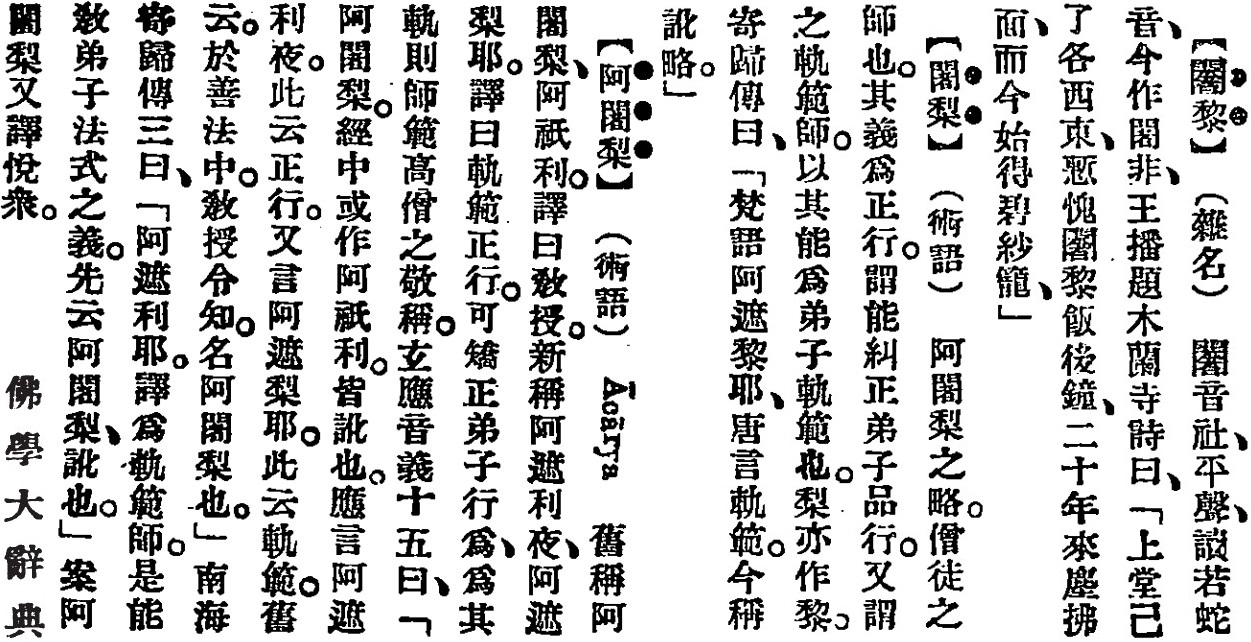 【闍黎】（雜名）闍音社、平聲、讀若蛇
音、今作闍非、王播題木蘭寺詩曰、「上堂已
了各西東、慙愧闍黎飯後鐘、二十年來塵拂
面、而今始得碧紗籠、」
【闍梨】（術語）阿闍梨之略。僧徒之
師也。其義爲正行。謂能糾正弟子品行。又謂
之軌範師。以其能爲弟子軌範也。梨亦作黎。
寄歸傳曰、「梵語阿遮黎耶、唐言軌範。今稱
訛略。」
【阿闍梨】（術語）Ācārya 舊稱阿
闍梨、阿祇利。譯曰敎授。新稱阿遮利夜、阿遮
梨耶。譯曰軌範正行。可矯正弟子行爲、爲其
軌則師範高僧之敬稱。玄應音義十五曰、「
阿闍梨。經中或作阿祇利。皆訛也。應言阿遮
利夜。此云正行。又言阿遮梨耶。此云軌範。舊
云。於善法中。敎授令知。名阿闍梨也。」南海
寄歸傳三曰、「阿遮利耶。譯爲軌範師。是能
敎弟子法式之義。先云阿闍梨、訛也。」案阿
闍梨又譯悅衆。
佛學大辭典